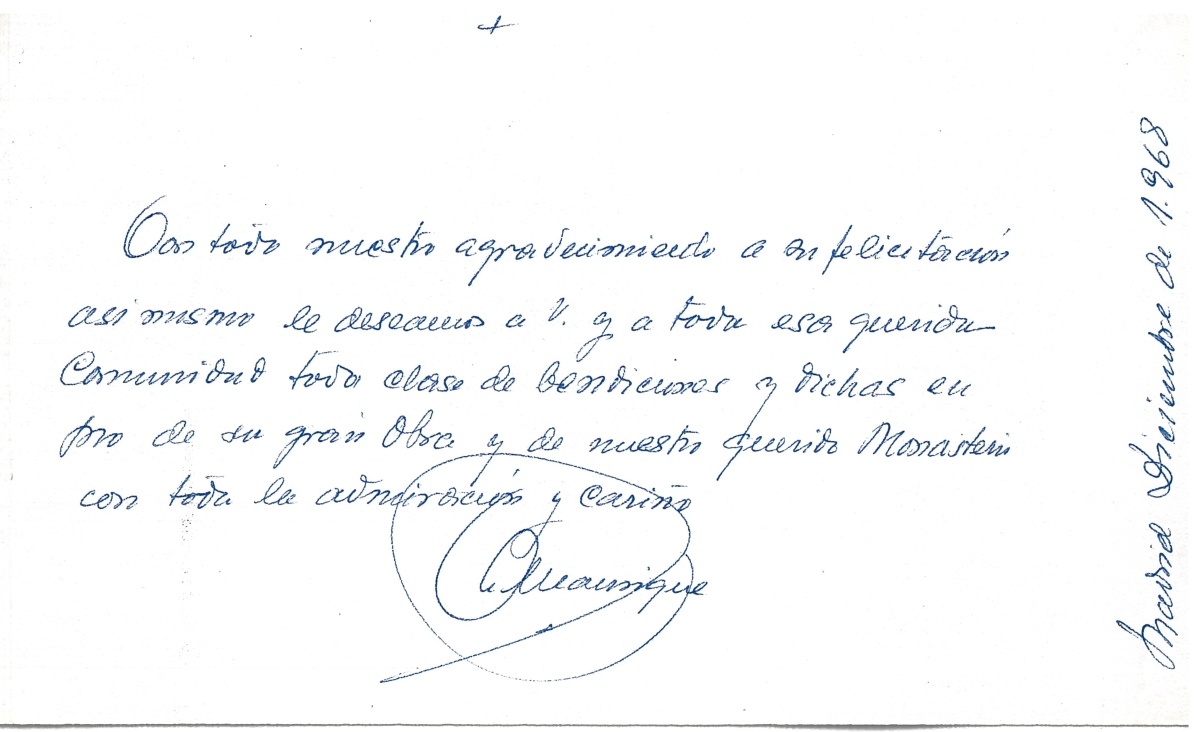 +
Con todo nuestro agradecimiento a su felicitación
asi mismo le deseamos a V. y a toda esa querida
Comunidad toda clase de bendiciones y dichas en
pro de su gran Obra y de nuestro querido Monasterio
con toda la admiración y cariño
Manrique
Madrid Diciembre de 1.968